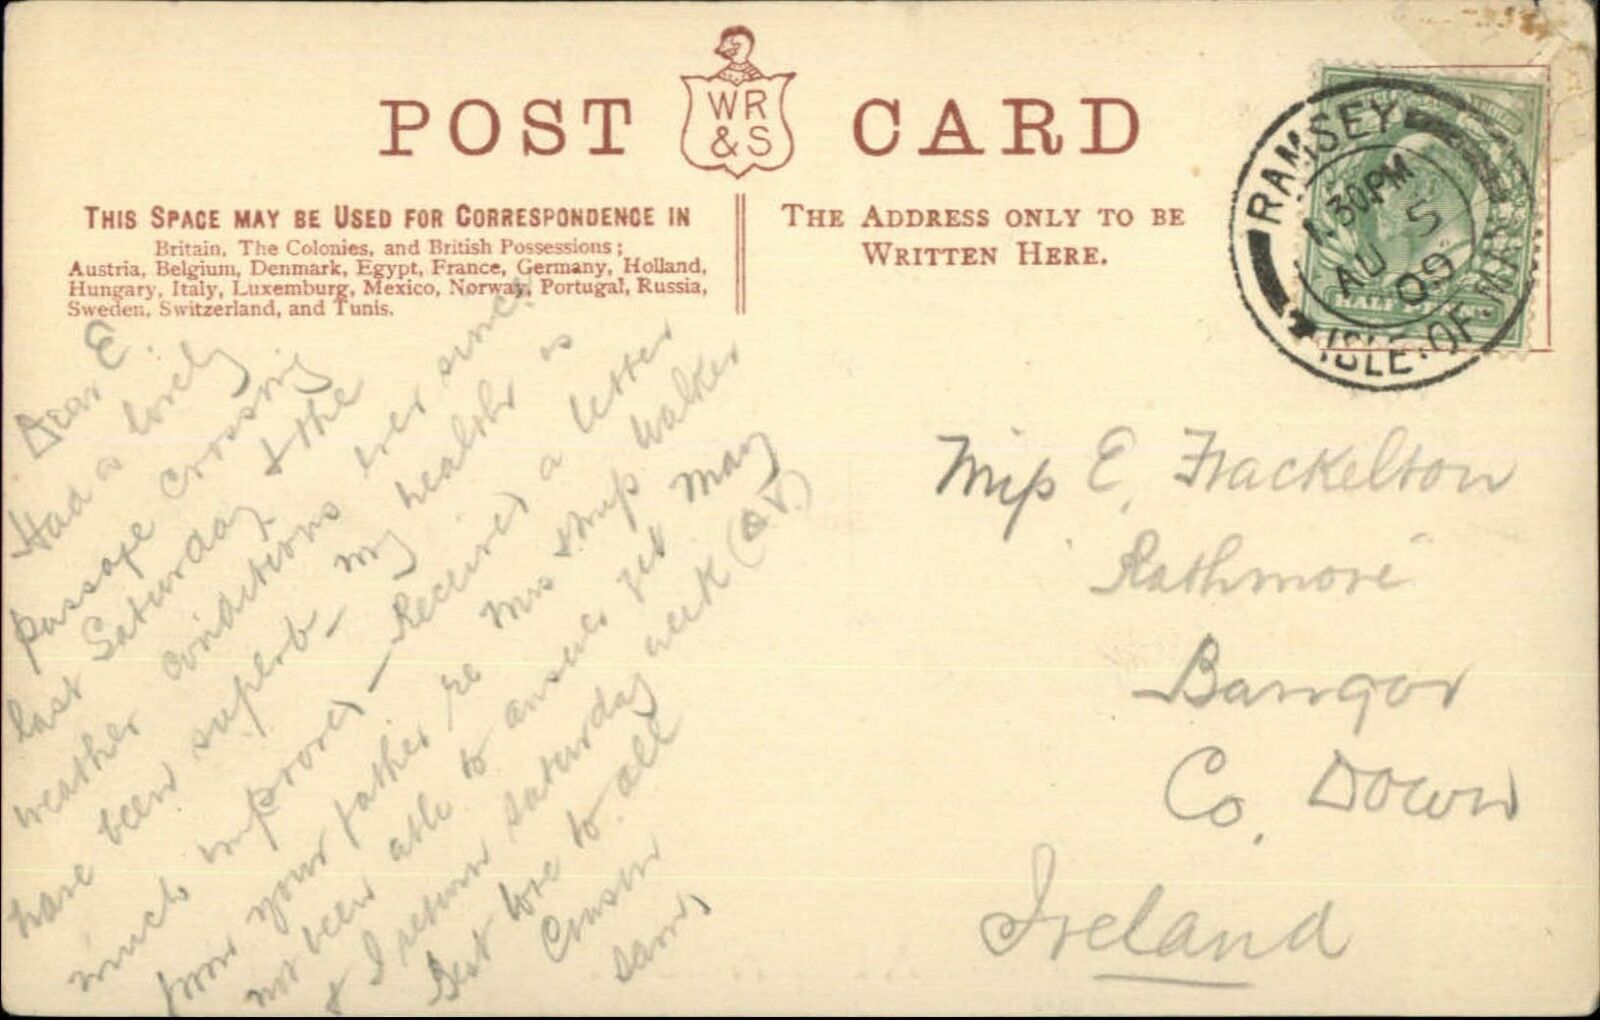 POST CARD
WR
& S
THIS SPACE MAY BE USED FOR CORRESPONDENCE IN
Britain, The Colonies, and British Possessions;
Austria, Belgium, Denmark, Egypt, France, Germany, Holland,
Hungary, Italy, Luxemburg, Mexico, Norway, Portugal, Russia,
Sweden, Switzerland, and Tunis.
THE ADDRESS ONLY TO BE
WRITTEN HERE.
RAMSEY
1.30PM
AU 5
09
ISLE·OF·MAN
Dear E.
Had a lovely
passage crossing
last Saturday & the
weather conditions ever since
have been superb – my health is
much improved – Received a letter
from your father re Mrs & Miss Walker
not been able to answer yet May
& I return Saturday week (D.V.)
Best love to all
Cousin
Sam,
Miss E. Frackelton
"Rathmore"
Bangor
Co. Down
Ireland